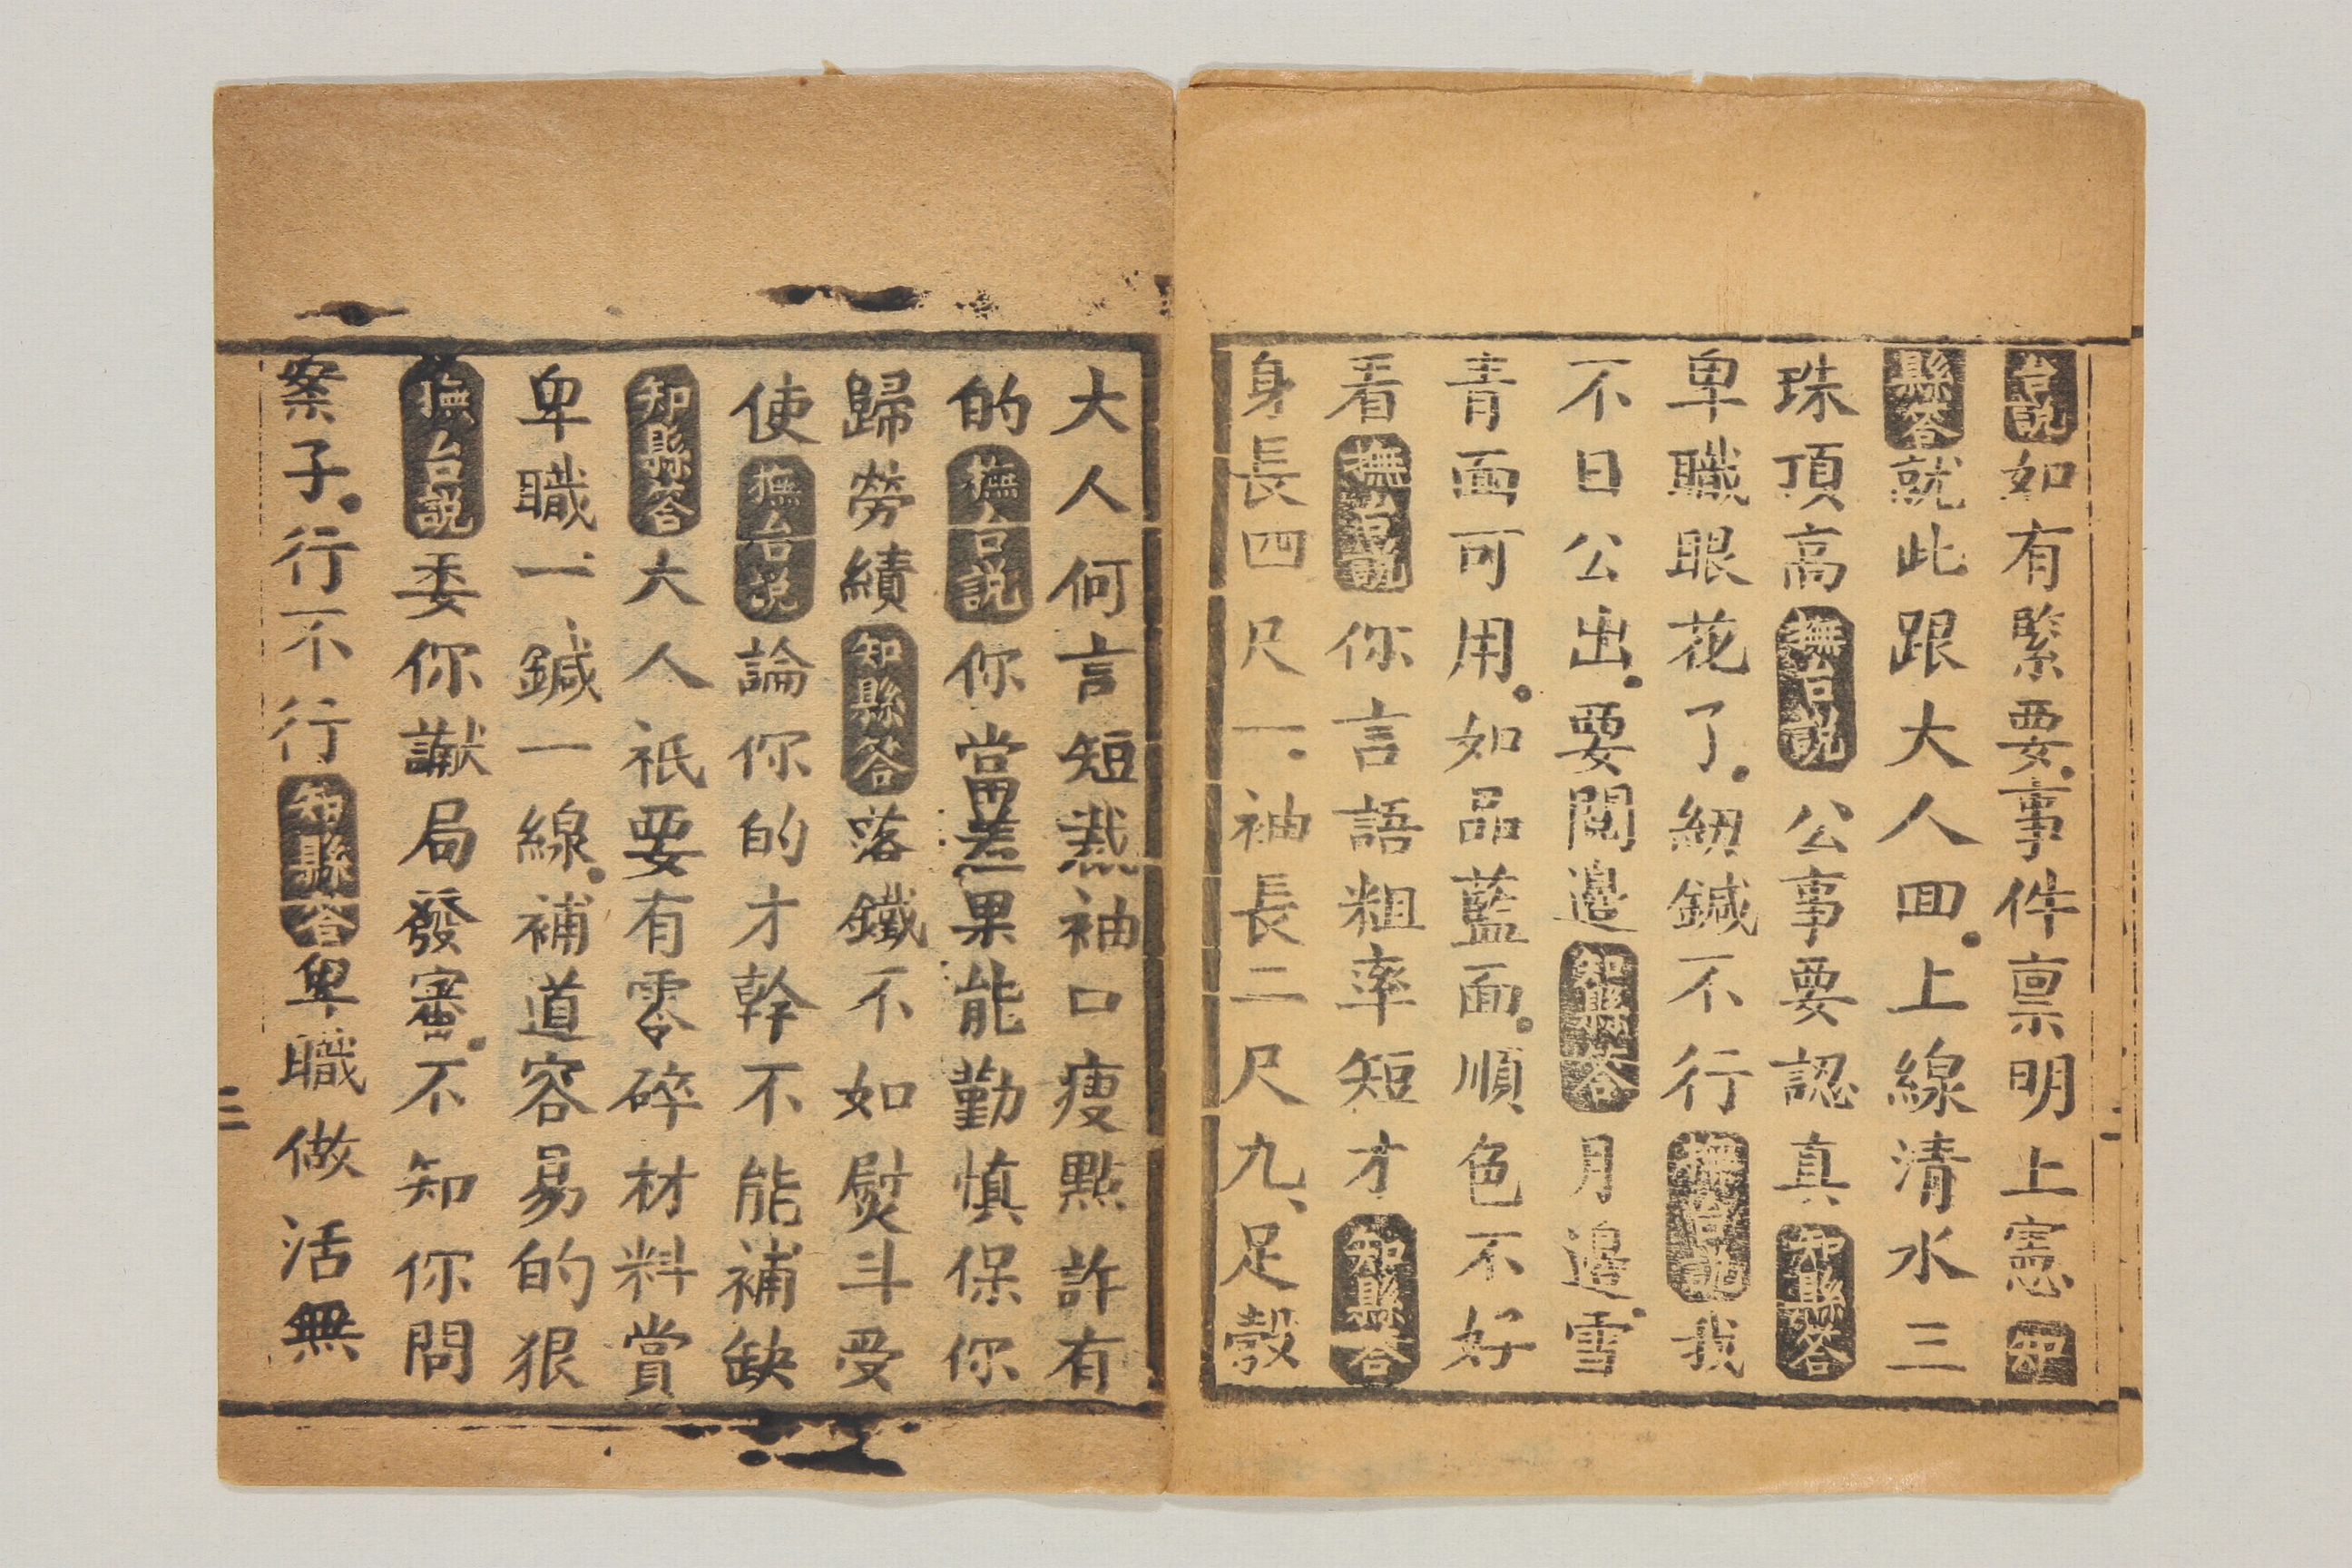 台說如有緊要事件禀明上憲知
縣答就此跟大人回上線清水三
珠頂高撫台說公事要認真知縣答
卑職眼花了紉鍼不行撫台說我
不日公出要閱邊知縣答月邊雪
青面可用如品藍面順色不好
看撫台說你言語粗率短才知縣答
身長四尺一袖長二尺九足彀
大人何言短㷼袖口瘦點許有
的撫台說你當差果能勤慎保你
歸勞績知縣答落鐵不如熨斗受
使撫台說論你的才幹不能補缺
知縣答大人祇要有零碎材料賞
卑職一鍼一線補道容易的狠
撫台說委你讞局發審不知你問
案子行不行知縣答卑職做活無
二
三